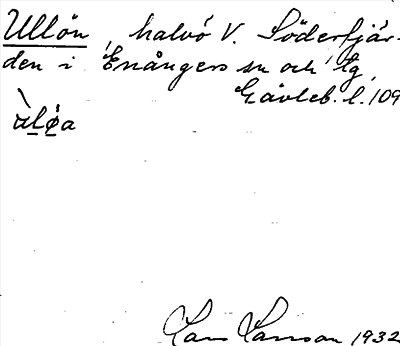 Ullön, halvö V. Söderfjär-
den i Enångers sn och tg,
Gävleb. l. 109
ùlø̨a
Lars Larsson 1932